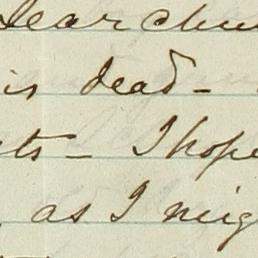 dear chu
is dead -
ts - I hope
as I mig